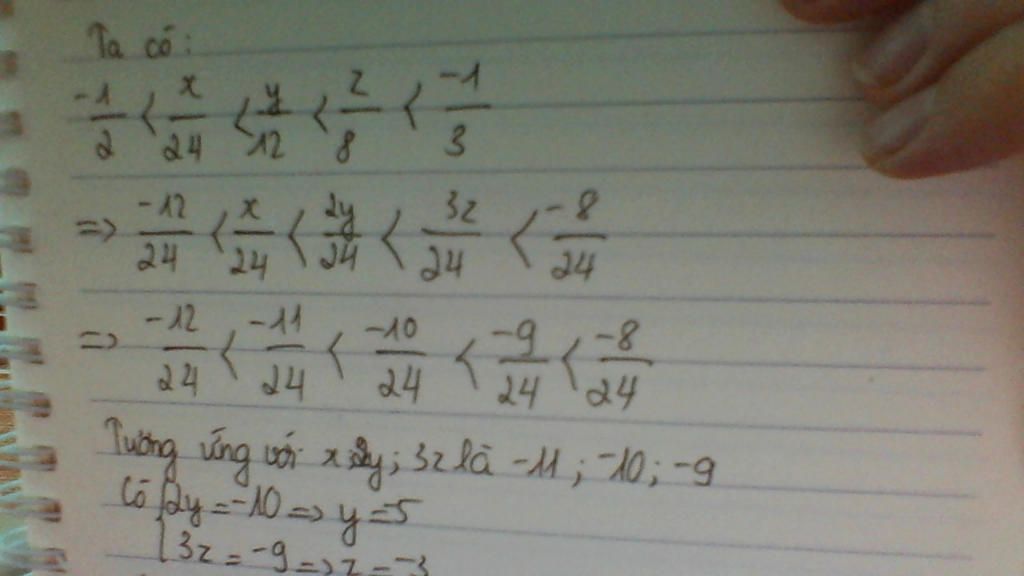 Ta có:
-1/2 < x/24 < y/12 < z/8 < -1/3
=> -12/24 < x/24 < 2y/24 < 3z/24 < -8/24
=> -12/24 < -11/24 < -10/24 < -9/24 < -8/24
Tương ứng với x; 2y; 3z là -11; -10; -9
Có {2y = -10 => y = -5
3z = -9 => z = -3